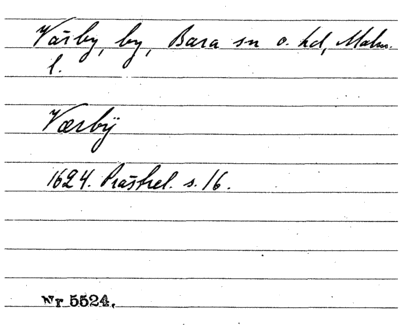 Värby, by, Bara sn o. hd, Malm.
l.
Værbÿ
1624. Prästrel. s. 16.
Nr 5524.